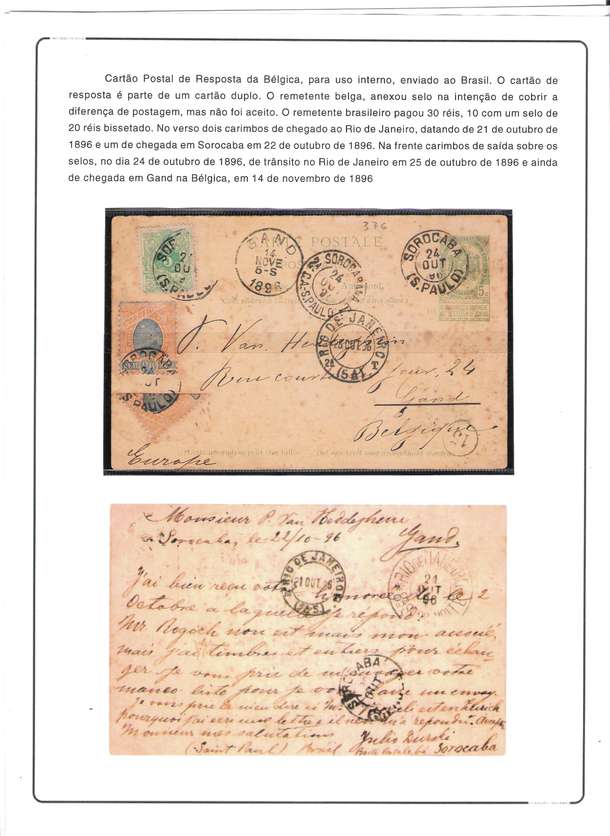 Cartão Postal de Resposta da Bélgica, para uso interno, enviado ao Brasil. O cartão de
resposta é parte de um cartão duplo. O remetente belga, anexou selo na intenção de cobrir a
diferença de postagem, mas não foi aceito. O remetente brasileiro pagou 30 réis, 10 com um selo de
20 réis bissetado. No verso dois carimbos de chegado ao Rio de Janeiro, datando de 21 de outubro de
1896 e um de chegada em Sorocaba em 22 de outubro de 1896. Na frente carimbos de saída sobre os
selos, no dia 24 de outubro de 1896, de trânsito no Rio de Janeiro em 25 de outubro de 1896 e ainda
de chegada em Gand na Bélgica, em 14 de novembro de 1896
376
POSTALE
GAND
14
NOVE
6-S
1896
SOROCABA
24
OUT
96
(S. PAULO)
SOROCABANA
24
S. PAULO
RIO DE JANEIRO
25 OUT 96
(5A)
SOROCABA
(S. PAULO)
P. Van
Rue 24
Gand
Belgique
Europe
Monsieur P. Van Heddeghem
Sorocaba, le 22/10-96 Gand
RIO DE JANEIRO
21 OUT 96
21
OUT
96
J'ai bien reçu votre le 2
Octobre a laquelle je répond
Mr non est mais mon associé,
mais j'ai timbres et entiers pour échan
ger je vous prie de m'envoyer votre
manco liste pour je vous faire un envoy.
SOROCABA
OUT
Je vous prie
pourquoi j'ai lettre et il m'a repondu.
Monsieur mes salutations Julio
(Saint Paul) Brésil Sorocaba